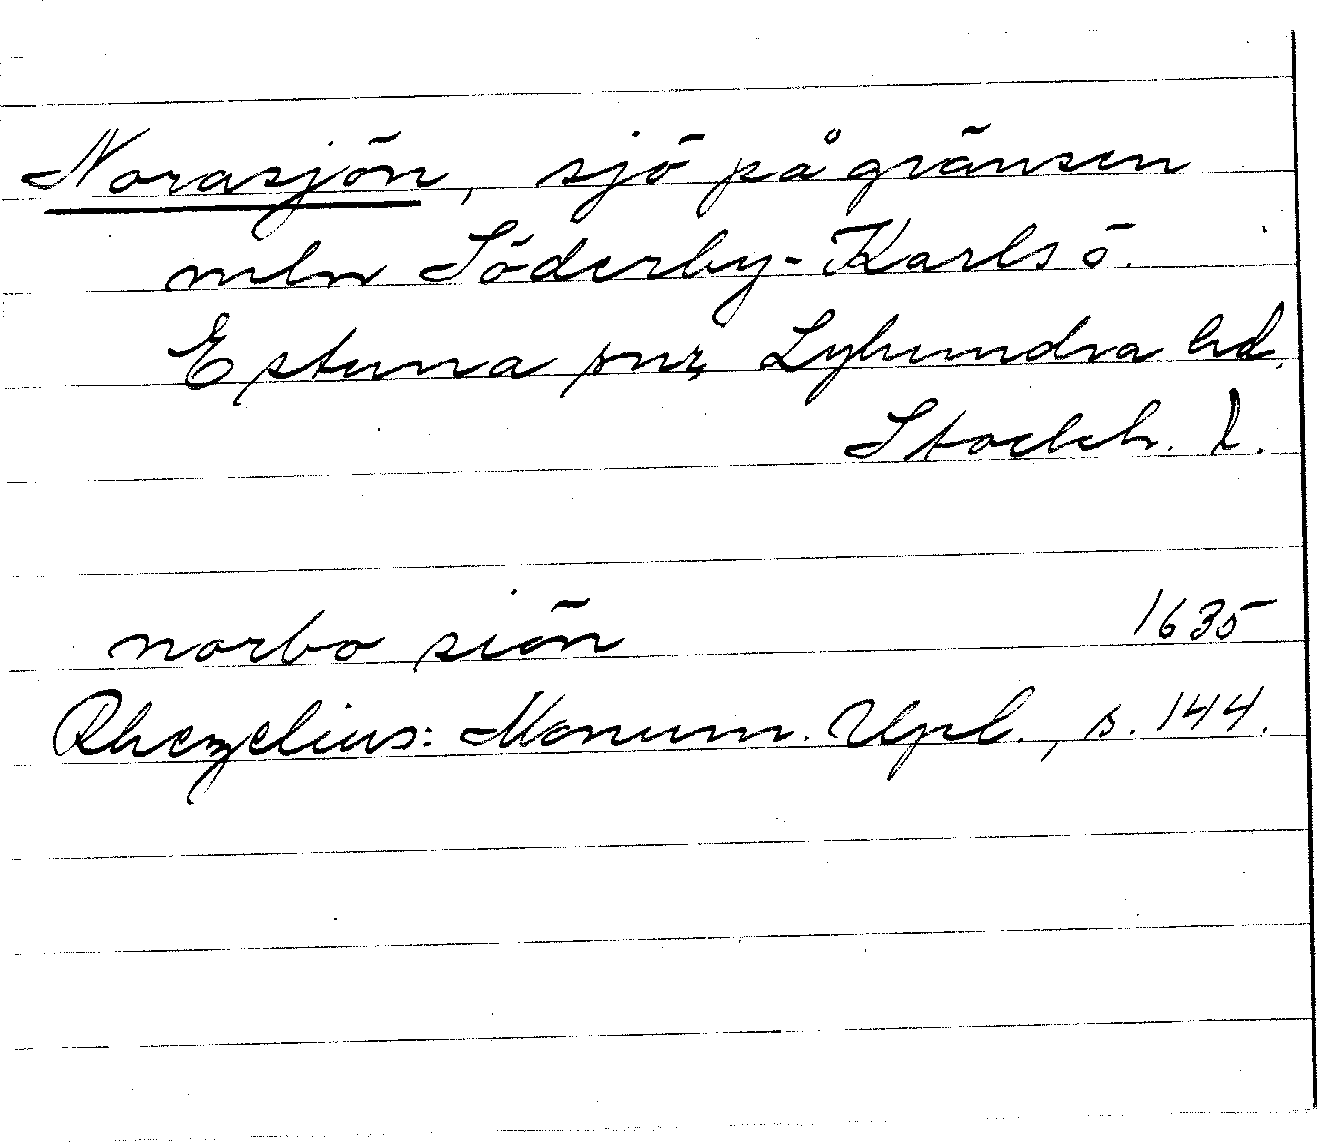 Norasjön, sjö på gränsen
mln Söderby-Karls ö.
Estuna snr, Lyhundra hd,
Stockh. l.
norbo siön 1635
Rhezelius: Monum. Upl., s. 144.